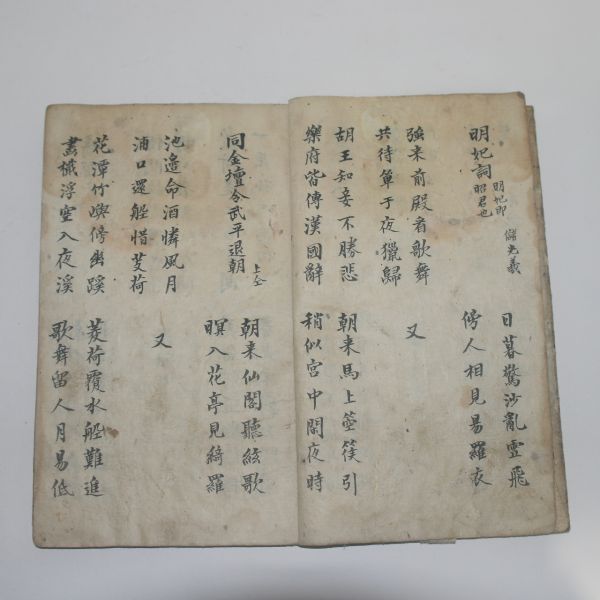 明妃詞 明妃即昭君也 儲光羲
日暮驚沙亂雪飛
傍人相見易羅衣
強来前殿看歌舞
共待單于夜獵歸
又
胡王知妾不勝悲
樂府皆傳漢國辭
朝来馬上箜篌引
稍似宮中閑夜時
同金壇分武平退朝 上仝
朝来仙閣聽絃歌
暝入花亭見綺羅
池邊命酒憐風月
浦口還舩惜芰荷
又
花潭竹嶼傍幽蹊
畫檝浮空入夜溪
菱荷覆水舩難進
歌舞留人月易低